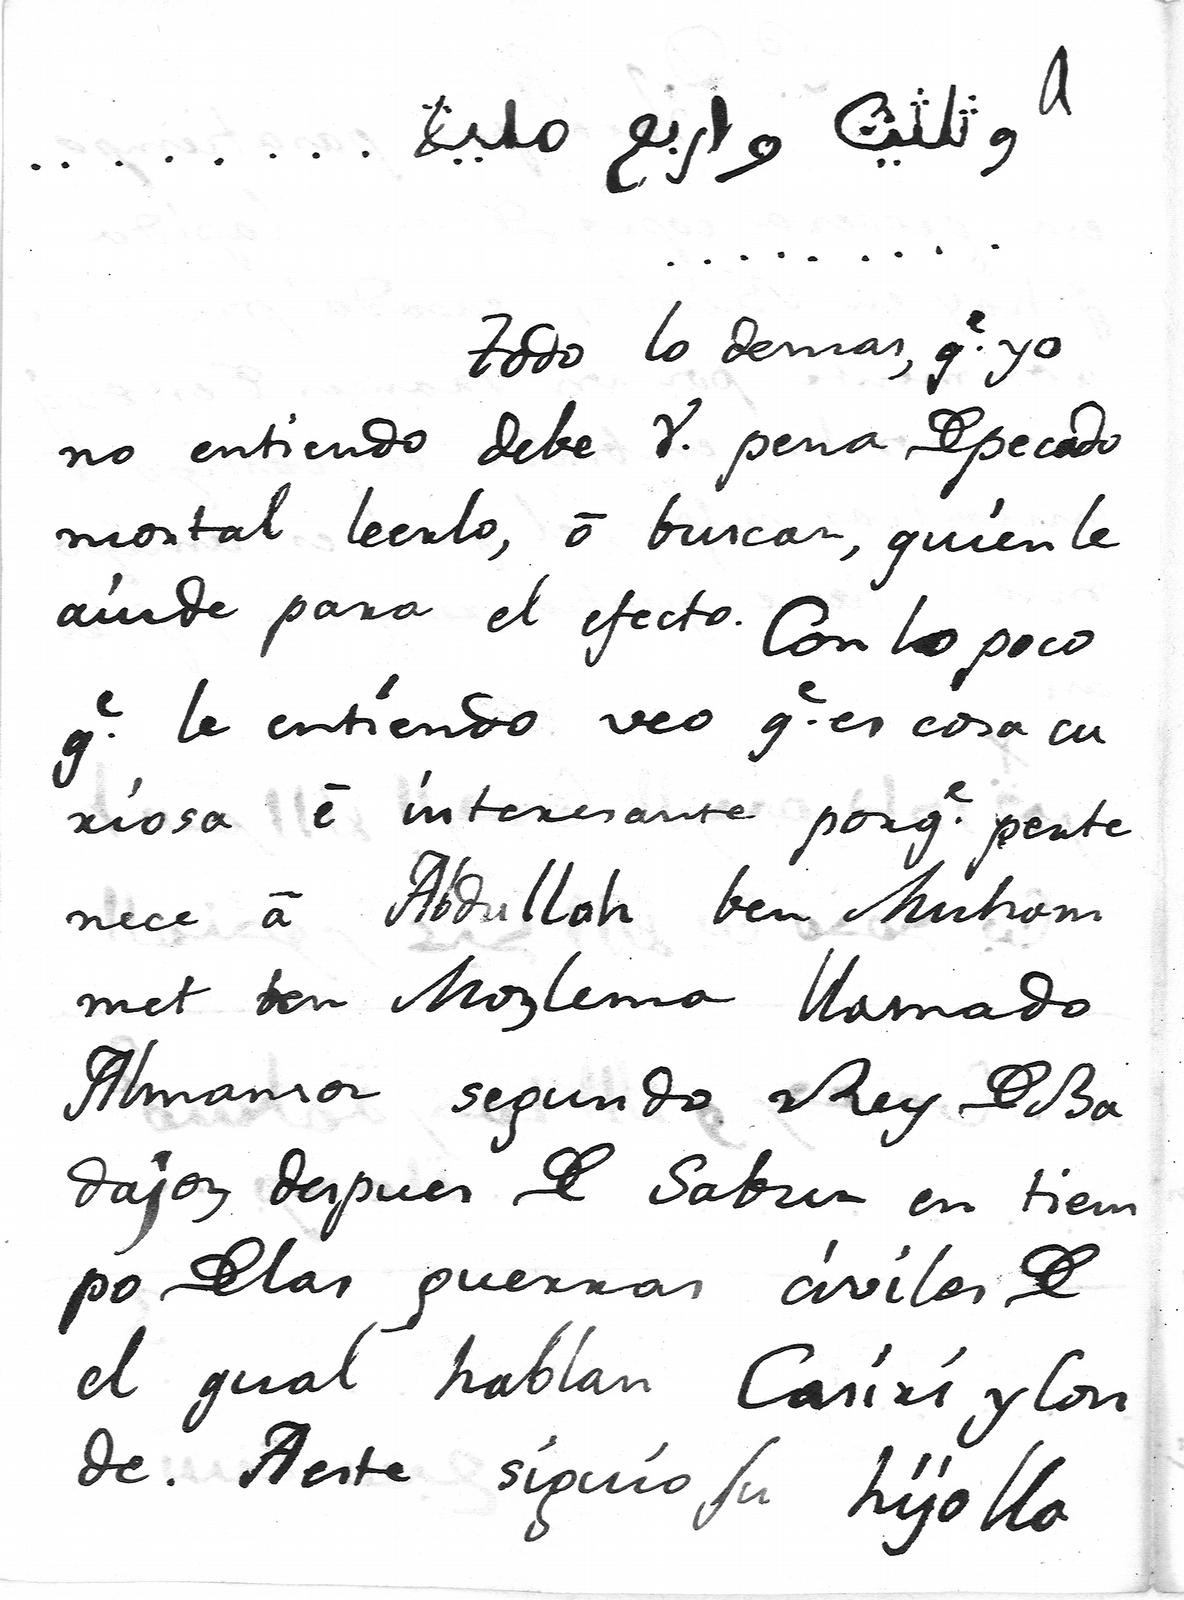 وثلثين واربع ماية . . . . . . . . .
. . . . . . . . .
Todo lo demas, q.e yo
no entiendo debe V. pena De pecado
mortal leerlo, ō buscar, quien le
aiude para el efecto. Con lo poco
q.e le entiendo veo q.e es cosa cu
riosa ē interesante porq.e perte
nece ā Abdullah ben Muham
met ben Mozlema llamado
Almansor segundo Rey De Ba
dajoz despues De Sabur en tiem
po De las guerras civiles De
el qual hablan Casiri y Con
de. A este siguio su hijo lla